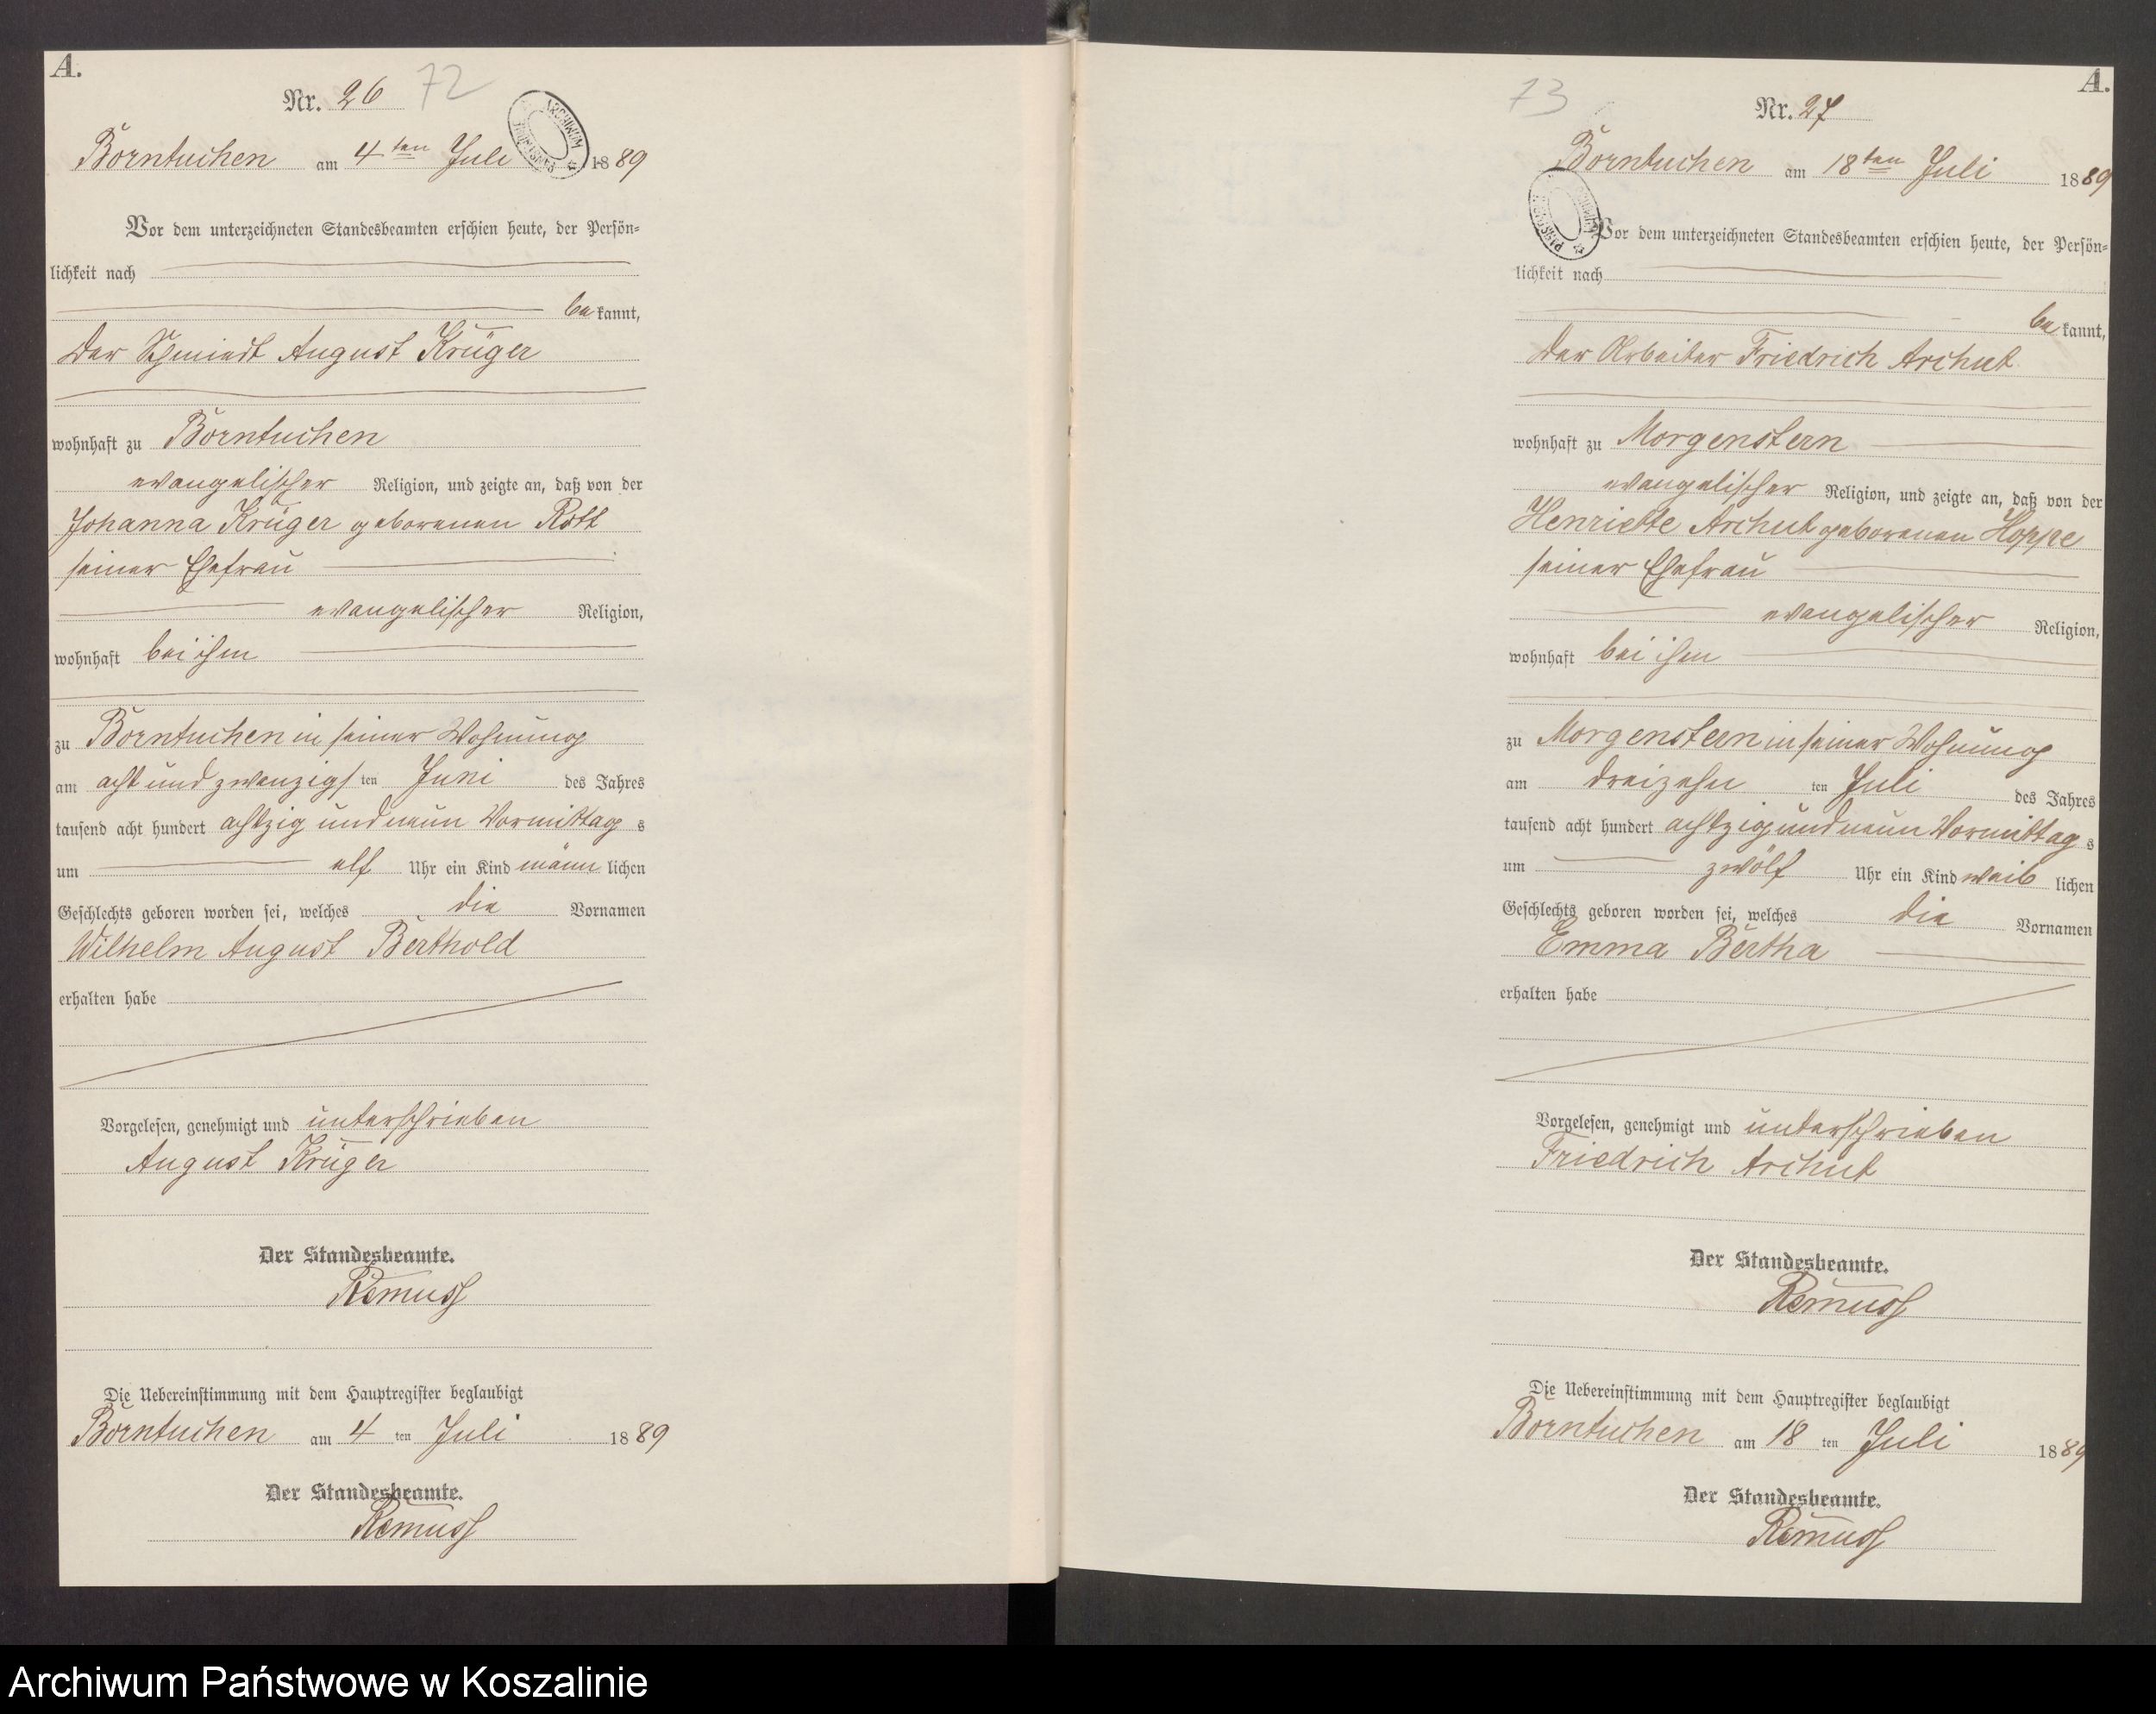 A.
Nr. 26
72
Borntuchen am 4ten Juli 1889
Vor dem unterzeichneten Standesbeamten erschien heute, der Persön-
lichkeit nach
bekannt,
der Schmiedt August Krüger
wohnhaft zu Borntuchen
evangelischer Religion, und zeigte an, daß von der
Johanna Krüger geborenen Rott
seiner Ehefrau
evangelischer Religion,
wohnhaft bei ihm
zu Borntuchen in seiner Wohnung
am acht und zwanzigsten Juni des Jahres
tausend acht hundert achtzig und neun Vormittags
um elf Uhr ein Kind männlichen
Geschlechts geboren worden sei, welches die Vornamen
Wilhelm August Berthold
erhalten habe
Vorgelesen, genehmigt und unterschrieben
August Krüger
Der Standesbeamte.
Remuss
Die Uebereinstimmung mit dem Hauptregister beglaubigt
Borntuchen am 4ten Juli 1889
Der Standesbeamte.
Remuss
A.
73
Nr. 27
Borntuchen am 18ten Juli 1889
Vor dem unterzeichneten Standesbeamten erschien heute, der Persön-
lichkeit nach
bekannt,
der Arbeiter Friedrich Archut
wohnhaft zu Morgenstern
evangelischer Religion, und zeigte an, daß von der
Henriette Archut geborenen Hoppe
seiner Ehefrau
evangelischer Religion,
wohnhaft bei ihm
zu Morgenstern in seiner Wohnung
am dreizehnten Juli des Jahres
tausend acht hundert achtzig und neun Vormittags
um zwölf Uhr ein Kind weiblichen
Geschlechts geboren worden sei, welches die Vornamen
Emma Bertha
erhalten habe
Vorgelesen, genehmigt und unterschrieben
Friedrich Archut
Der Standesbeamte.
Remuss
Die Uebereinstimmung mit dem Hauptregister beglaubigt
Borntuchen am 18ten Juli 1889
Der Standesbeamte.
Remuss
Archiwum Państwowe w Koszalinie